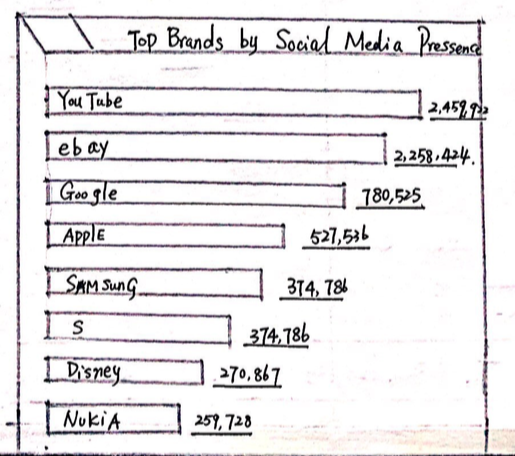 Top Brands by Social Media Pressence
YouTube
ebay 2,258,424.
Google 780,525
ApplE 527,536
SAMSunG 374,786
S 374,786
Disney 270,867
NukiA 259,728